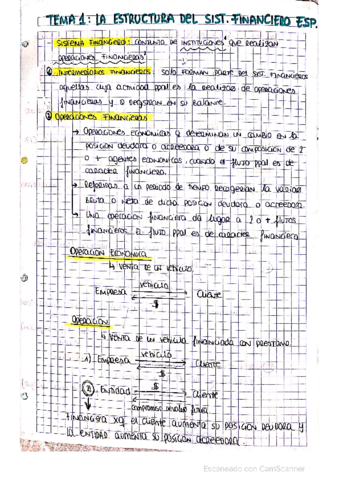 TEMA 1: LA ESTRUCTURA DEL SIST. FINANCIERO ESP.
SISTEMA FINANCIERO: CONJUNTO DE INSTITUCIONES¹ QUE REALIZAN
OPERACIONES FINANCIERAS²
① INTERMEDIARIOS FINANCIEROS: SOLO FORMAN PARTE DEL SIST. FINANCIERO
AQUELLAS CUYA ACTIVIDAD PPAL ES LA REALIZAC DE OPERACIONES
FINANCIERAS Y Q REGISTRAN EN SU BALANCE.
② OPERACIONES FINANCIERAS
→ OPERACIONES ECONOMICAS Q DETERMINAN UN CAMBIO EN LA
POSICION DEUDORA O ACREEDORA O DE SU COMPOSICION DE 1
O + AGENTES ECONOMICOS, CUANDO EL FLUJO PPAL ES DE
CARACTER FINANCIERO.
→ REFERIDAS A UN PERIODO DE TIEMPO RECOGERIAN LA VARIAC
BRUTA O NETA DE DICHA POSICION DEUDORA O ACREEDORA
→ UNA OPERACION FINANCIERA DA LUGAR A 1 O + FLUJOS
FINANCIEROS. EL FLUJO PPAL ES DE CARACTER FINANCIERO
OPERACION ECONOMICA
↳ VENTA DE UN VEHICULO.
EMPRESA VEHICULO CLIENTE
$
OPERACION
↳ VENTA DE UN VEHICULO FINANCIADA CON PRESTAMO
1) EMPRESA VEHICULO CLIENTE
$
② ENTIDAD $ CLIENTE
COMPROMISO
FINANCIERA XQ EL CLIENTE AUMENTA SU POSICION DEUDORA Y
LA ENTIDAD AUMENTA SU POSICION ACREEDORA.
Escaneado con CamScanner